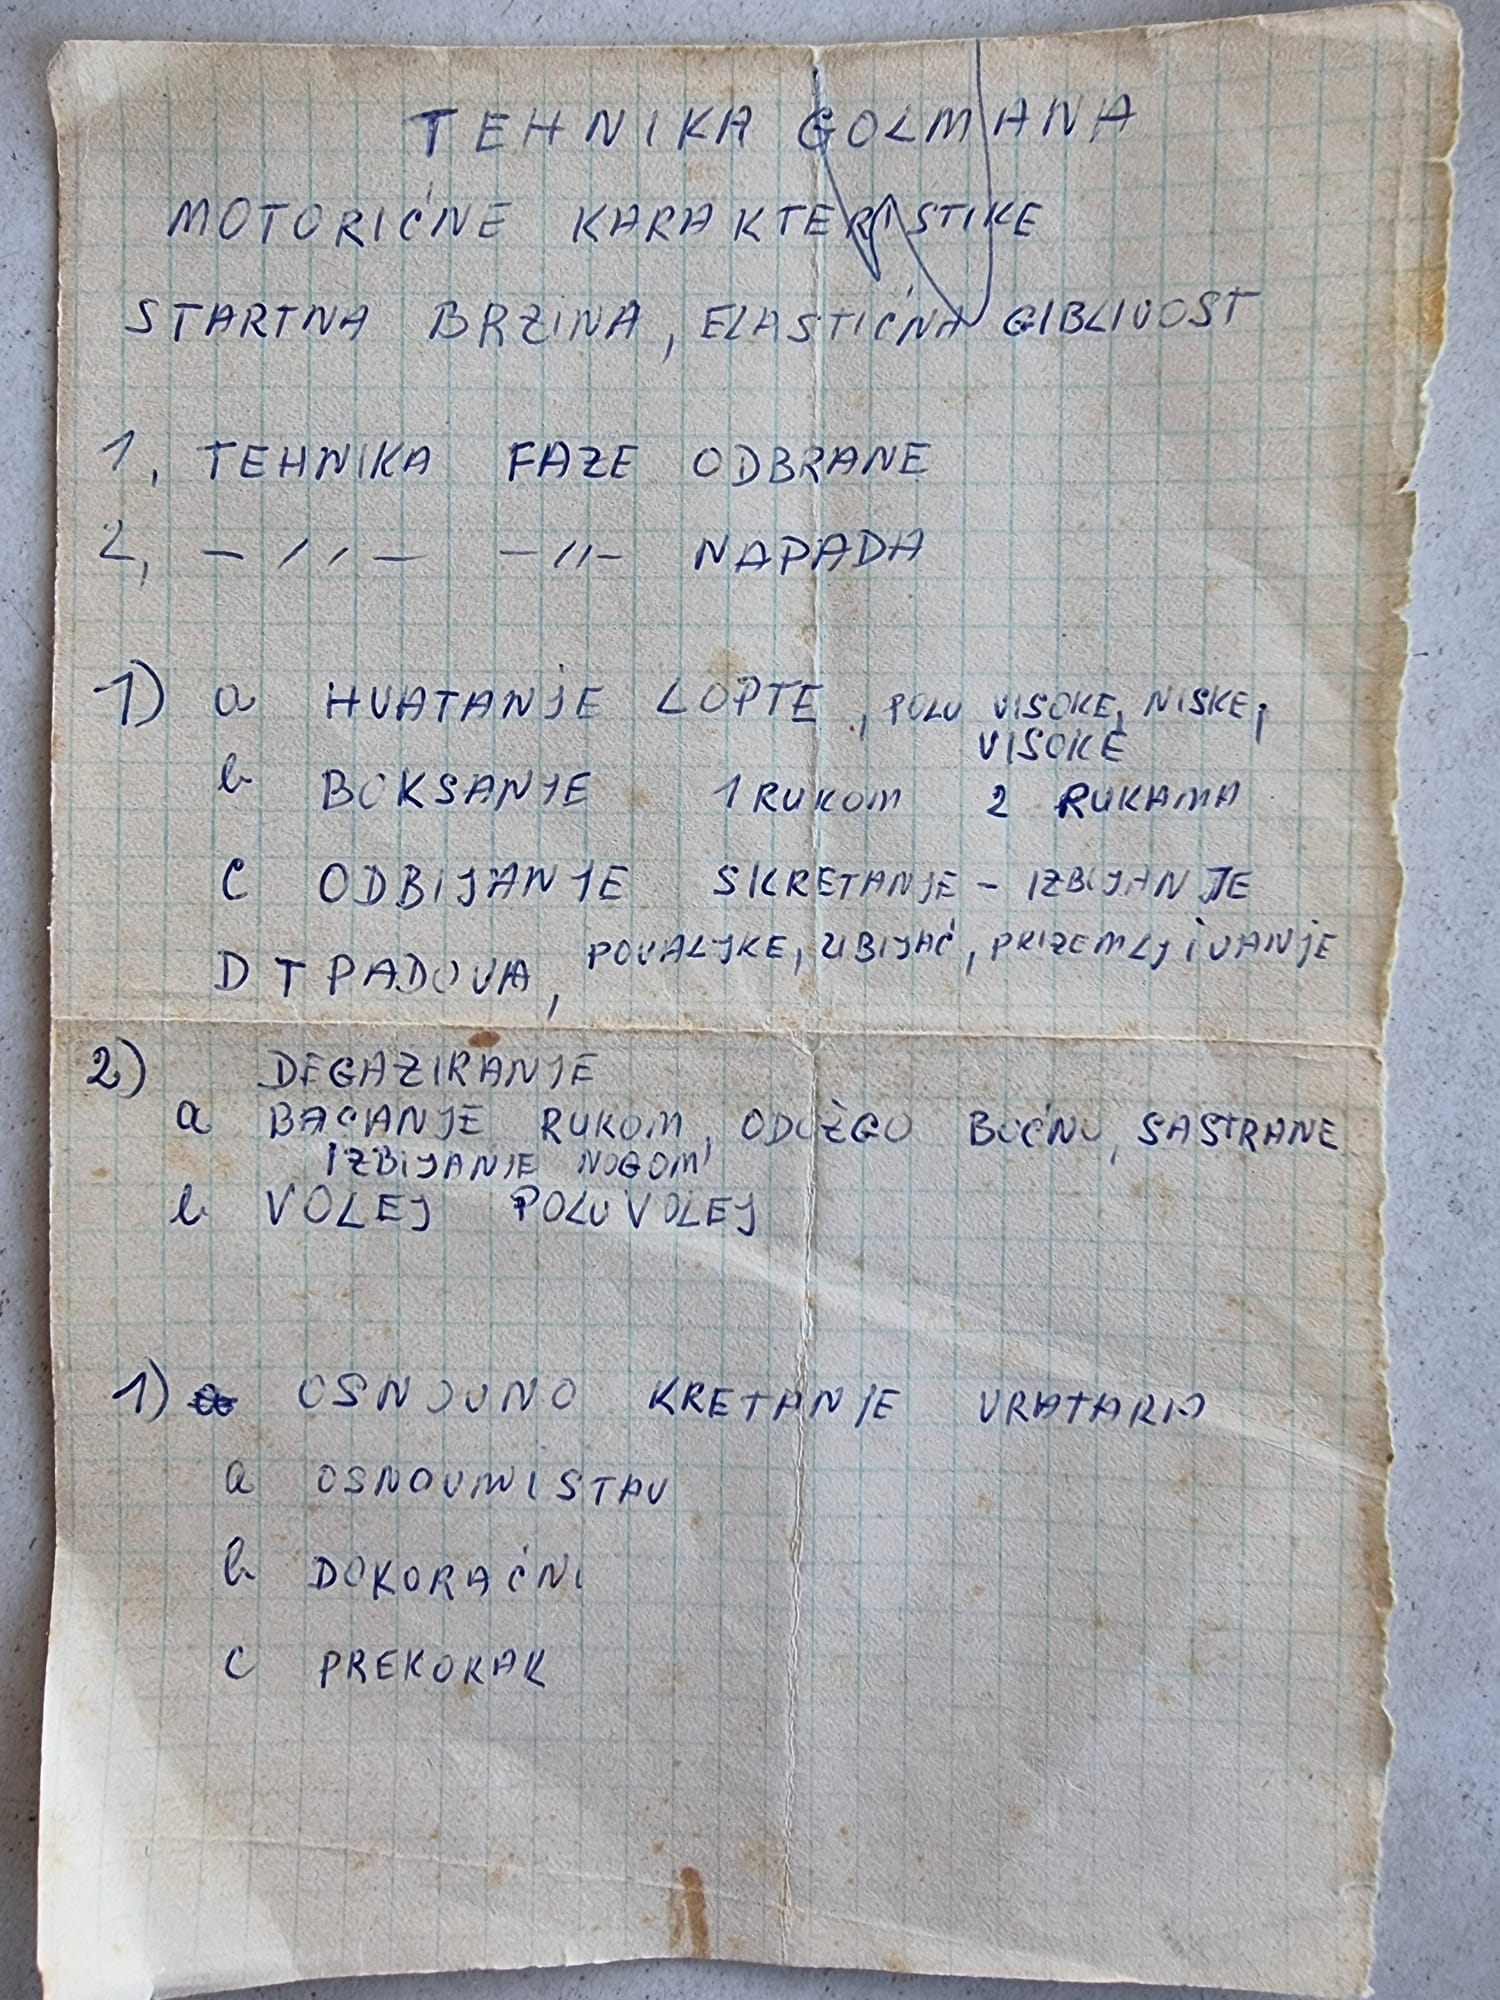 TEHNIKA GOLMANA
MOTORIĆNE KARAKTERISTIKE
STARTNA BRZINA, ELASTIĆNA GIBLIVOST
1, TEHNIKA FAZE ODBRANE
2, –//– –//– NAPADA
1) a HVATANJE LOPTE, POLU VISOKE, NISKE,
VISOKE
b BOKSANJE 1 RUKOM 2 RUKAMA
C ODBIJANJE SKRETANJE – IZBIJANJE
D T PADOVA, POVALJKE, UBIJAĆ, PRIZEMLJIVANJE
2) DEGAZIRANJE
a BACANJE RUKOM, ODOZGO BOĆNO, SASTRANE
IZBIJANJE NOGOM
b VOLEJ POLUVOLEJ
1) OSNOVNO KRETANJE VRATARA
a OSNOVNI STAV
b DOKORAĆNI
C PREKORAK